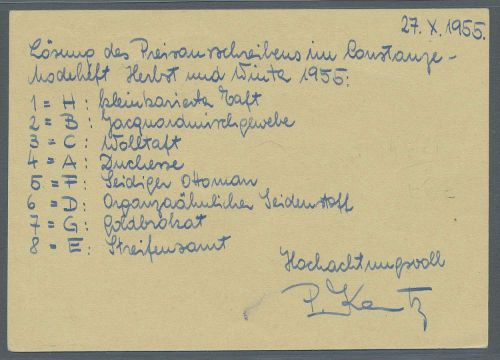 27. X. 1955.
Lösung des Preisausschreibens im Constanze-
Modeheft Herbst und Winter 1955:
1 = H : kleinkarierter Taft
2 = B : Jacquardmischgewebe
3 = C : Wolltaft
4 = A : Duchesse
5 = F : Seidiger Ottoman
6 = D : Organzaähnlicher Seidenstoff
7 = G : Goldbrokat
8 = E : Streifensamt
Hochachtungsvoll